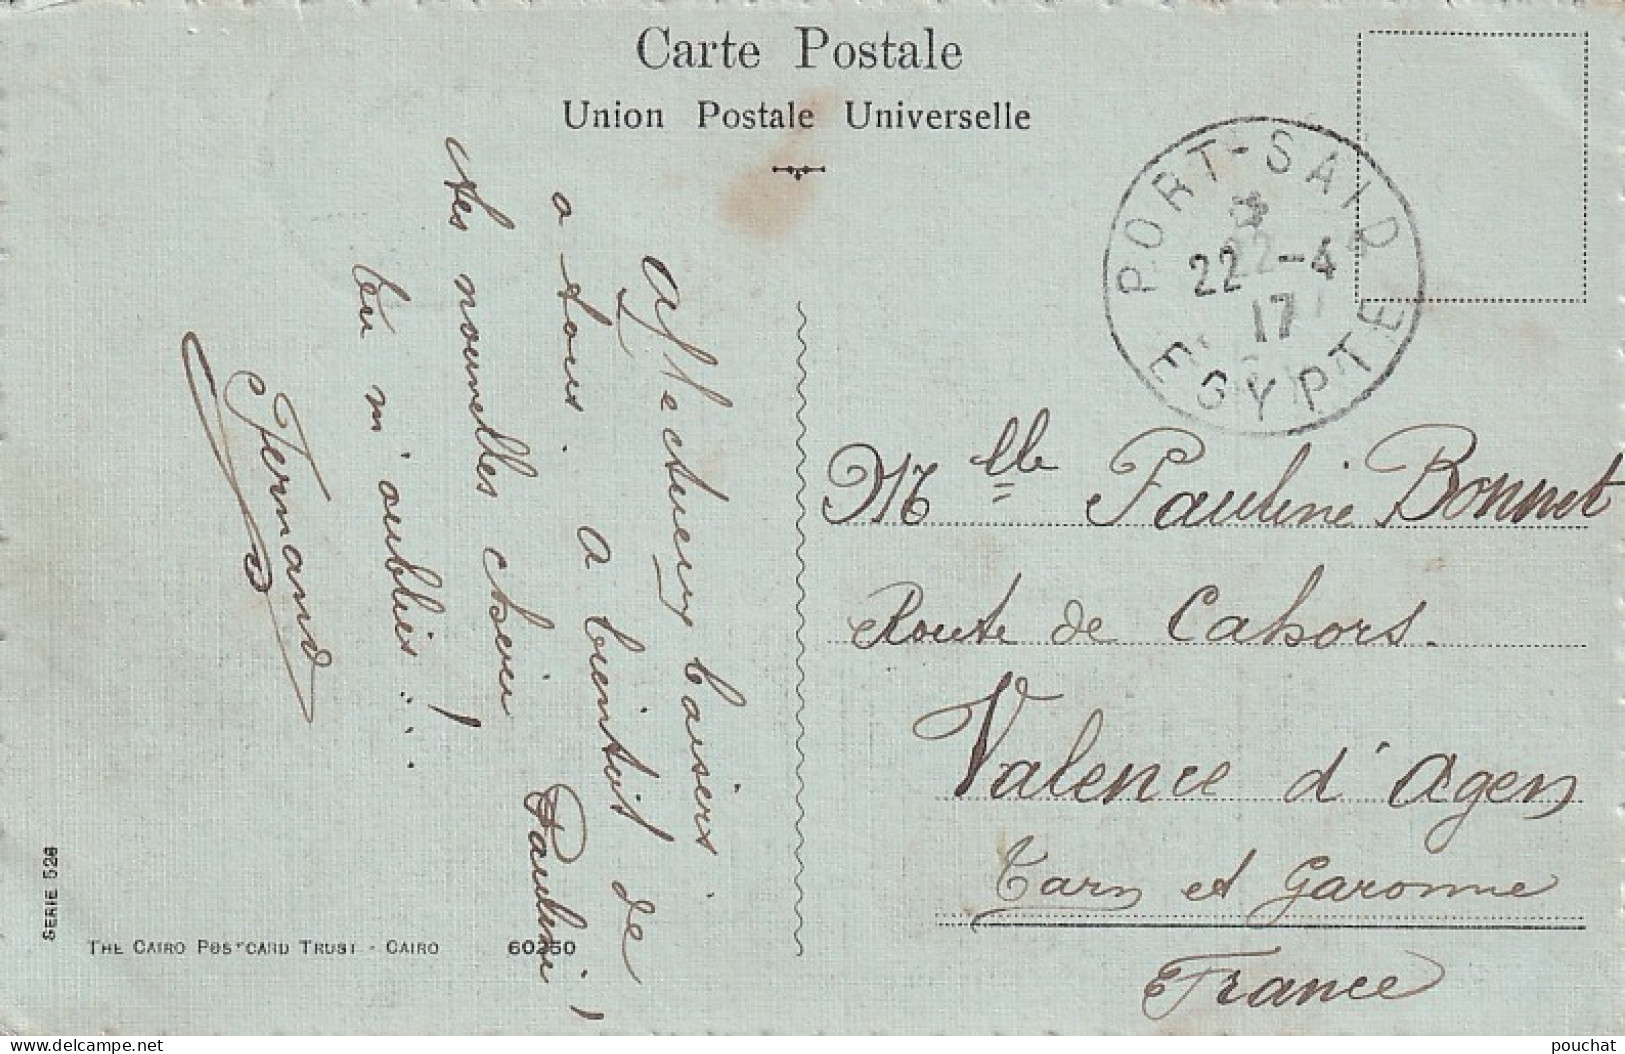 Carte Postale
Union Postale Universelle
PORT-SAID
22-4
17
EGYPTE
Affectueux baisers
a tous. a bientôt de
tes nouvelles chère Pauline!
tu m'oublies...!
Fernand
Mlle Pauline Bonnet
Route de Cahors.
Valence d'Agen
Tarn et Garonne
France
SERIE 528
THE CAIRO POSTCARD TRUST - CAIRO 60250
pouchat